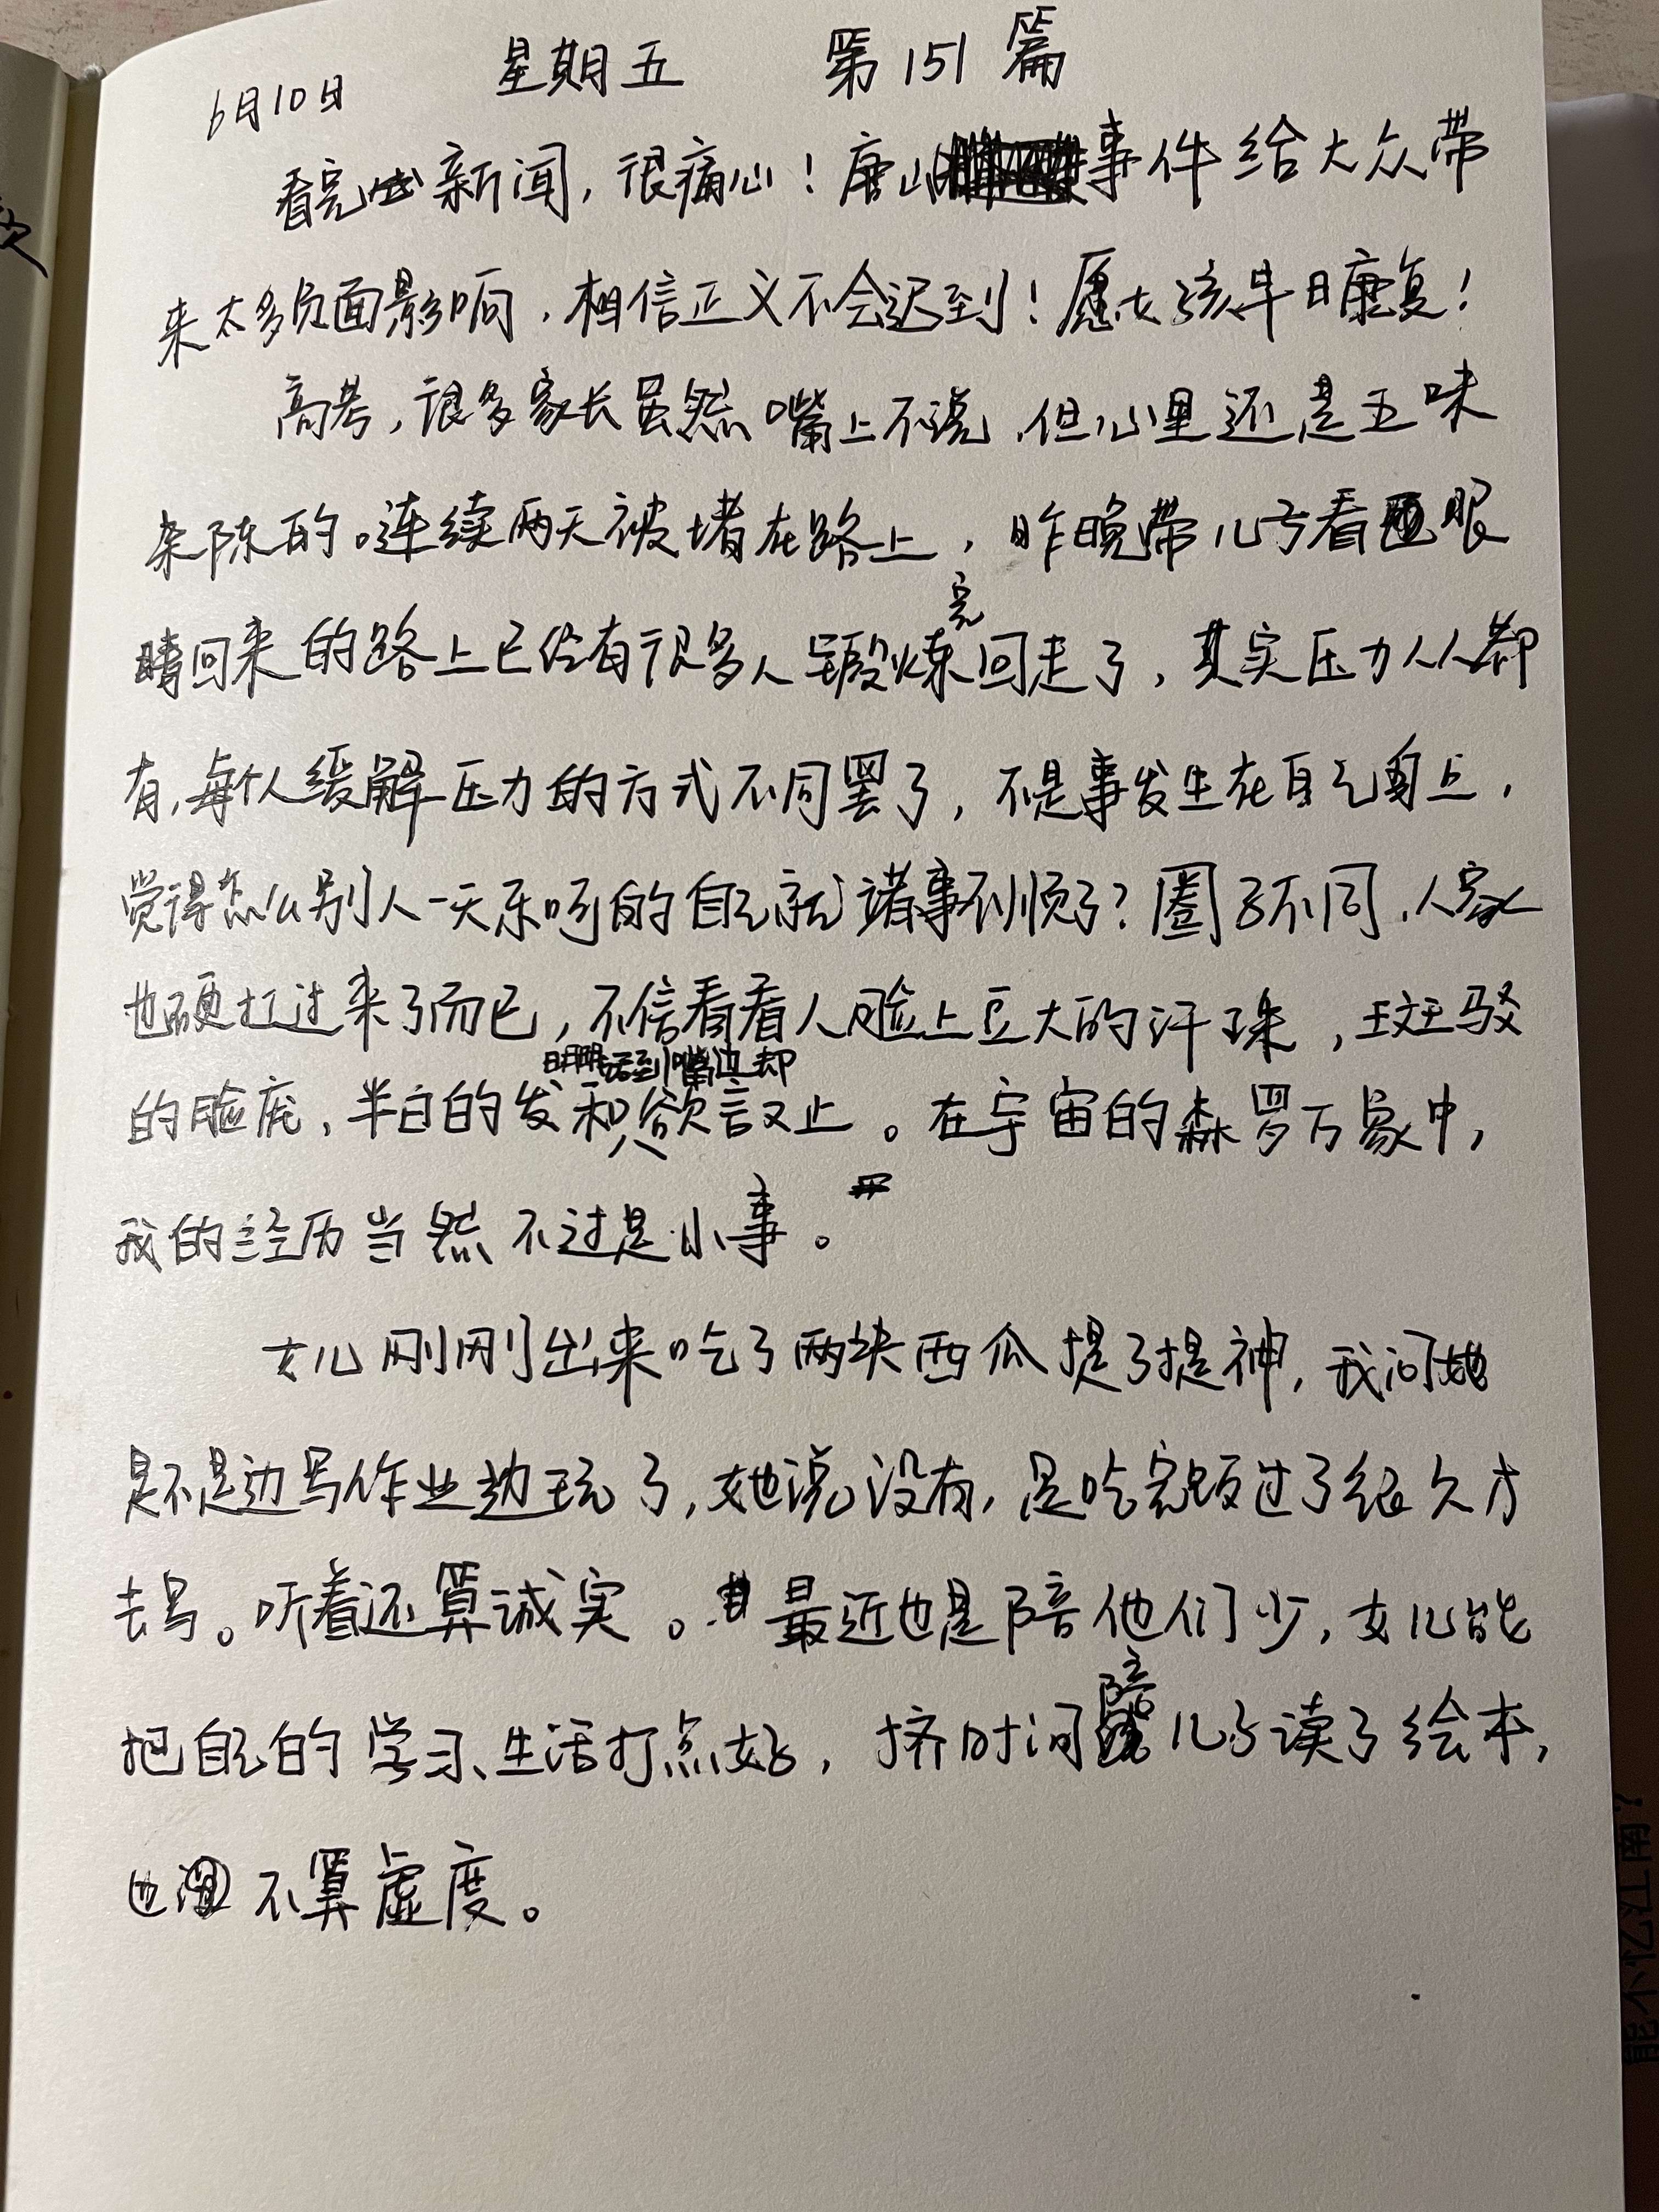 6月10日 星期五 第151篇
看完此新闻，很痛心！唐山事件给大众带
来太多负面影响，相信正义不会迟到！愿女孩早日康复！
高考，很多家长虽然嘴上不说，但心里还是五味
杂陈的。连续两天被堵在路上，昨晚带儿子看眼
睛回来的路上已经有很多人锻炼完回走了，其实压力人人都
有，每个人缓解压力的方式不同罢了，不是事发生在自己身上，
觉得怎么别人一天乐呵的自己就诸事不顺了？圈子不同，人家
也硬扛过来了而已，不信看看人脸上豆大的汗珠，斑驳
的脸庞，半白的发和明明话到嘴边却欲言又止。在宇宙的森罗万象中，
我的经历当然不过是小事。
女儿刚刚出来吃了两块西瓜提了提神，我问她
是不是边写作业边玩了，她说没有，是吃完饭过了很久才
去写。听着还算诚实。最近也是陪他们少，女儿能
把自己的学习、生活打点好，挤时间陪儿子读了绘本，
也不算虚度。